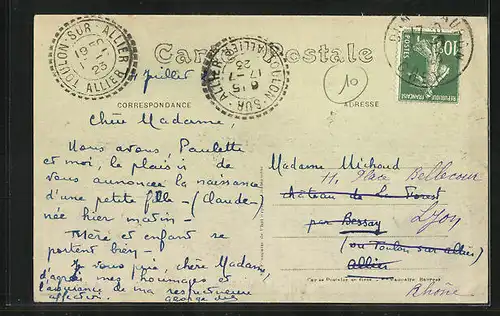 TOULON-SUR-ALLIER
ALLIER
23
TOULON-SUR-ALLIER
(ALLIER)
6 15
17-7
23
Carte Postale
10
POSTES
REPUBLIQUE FRANÇAISE
10
juillet
CORRESPONDANCE
ADRESSE
Chère Madame,
Nous avons, Paulette
et moi, le plaisir de
vous annoncer la naissance
d'une petite fille - (Claude)
née hier matin -
Mère et enfant se
portent bien -
Je vous prie, chère Madame,
d'agréer mes hommages et
l'assurance de ma respectueuse
affection. George
Madame Michoud
11, Place Bellecour
château de la Forest
par Bessay
Lyon
(ou Toulon sur allier)
Allier
Rhône